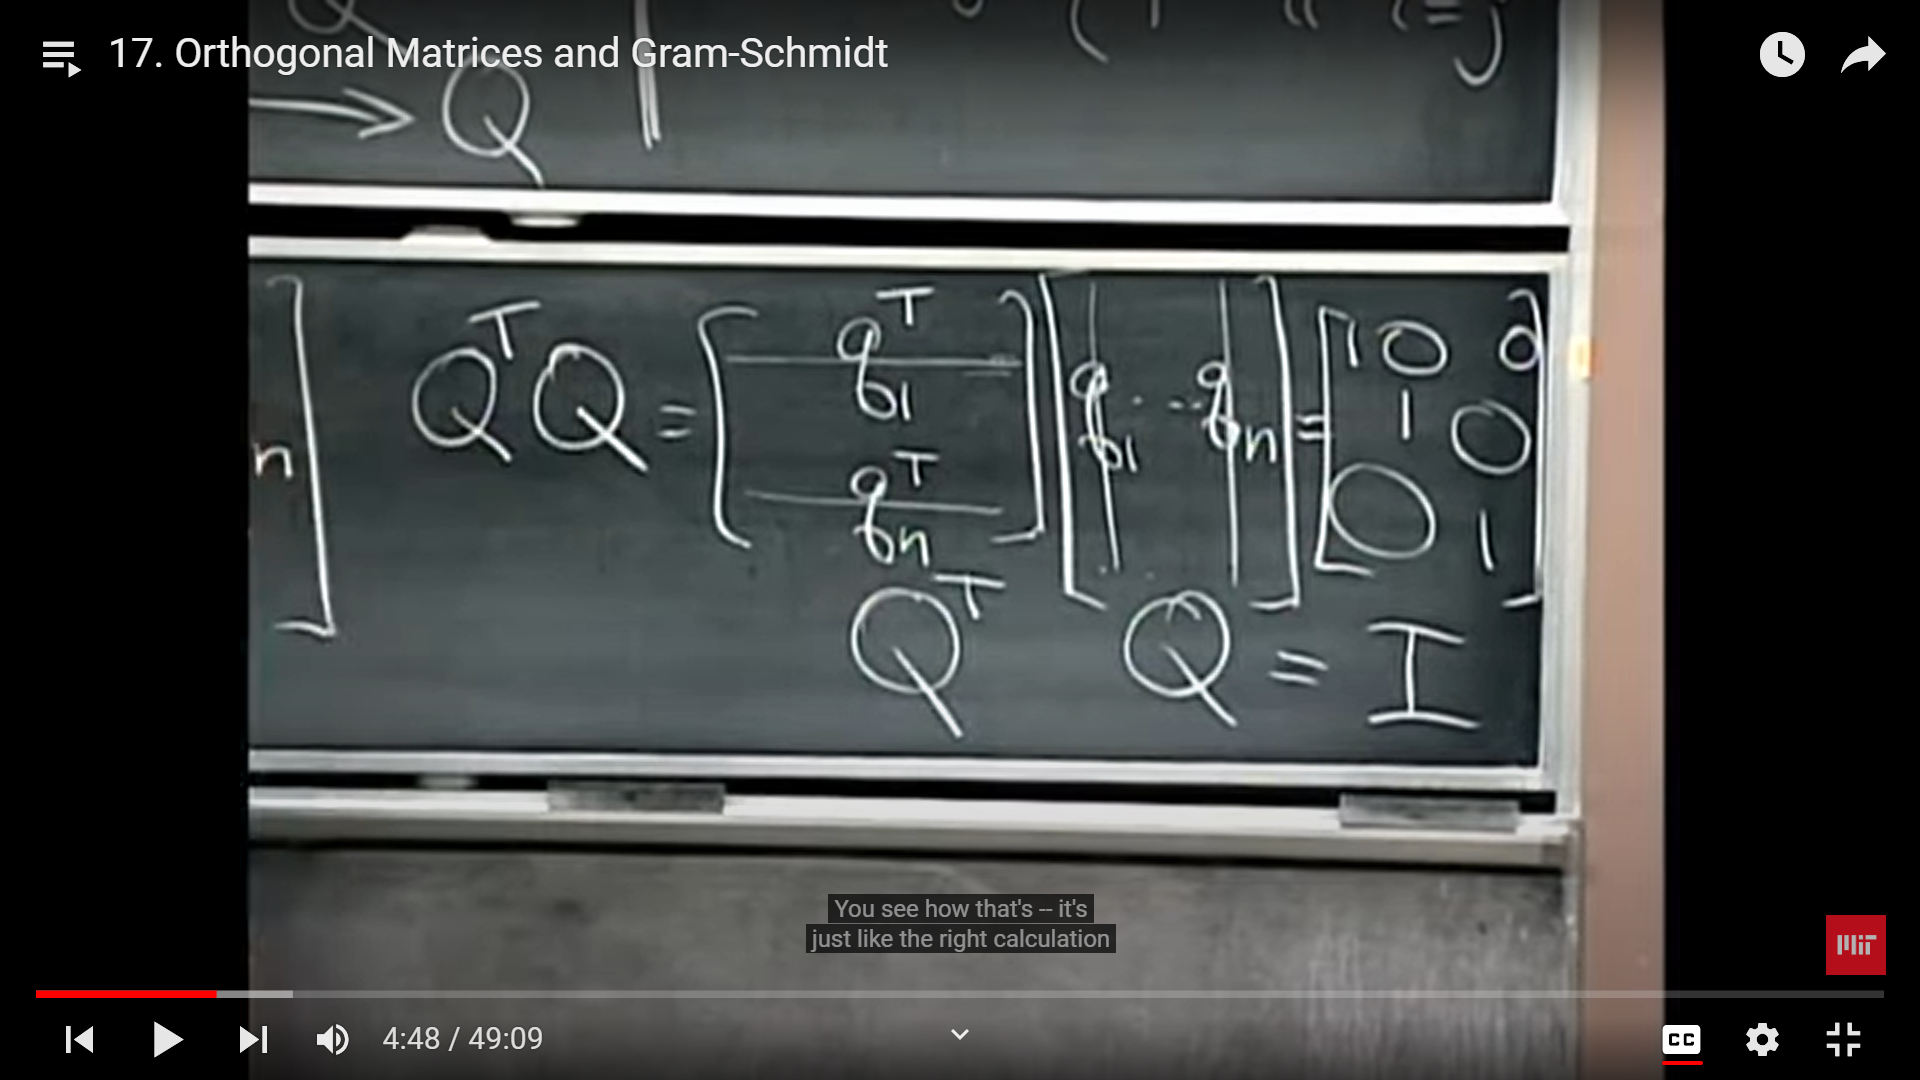 17. Orthogonal Matrices and Gram-Schmidt
→ Q
n] QᵀQ = [q₁ᵀ
qₙᵀ] [q₁ ... qₙ] = [1 0 0
1 0
0 1]
Qᵀ Q = I
You see how that's -- it's
just like the right calculation
MIT
4:48 / 49:09
CC